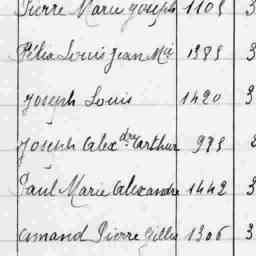 Pierre Marie Joseph 1105 3
Félix Louis Jean Mie 1385 3
Joseph Louis 1420 3
Joseph Alexdre Arthur 975
Paul Marie Alexandre 1442 3
Amand Pierre Gilles 1306 3